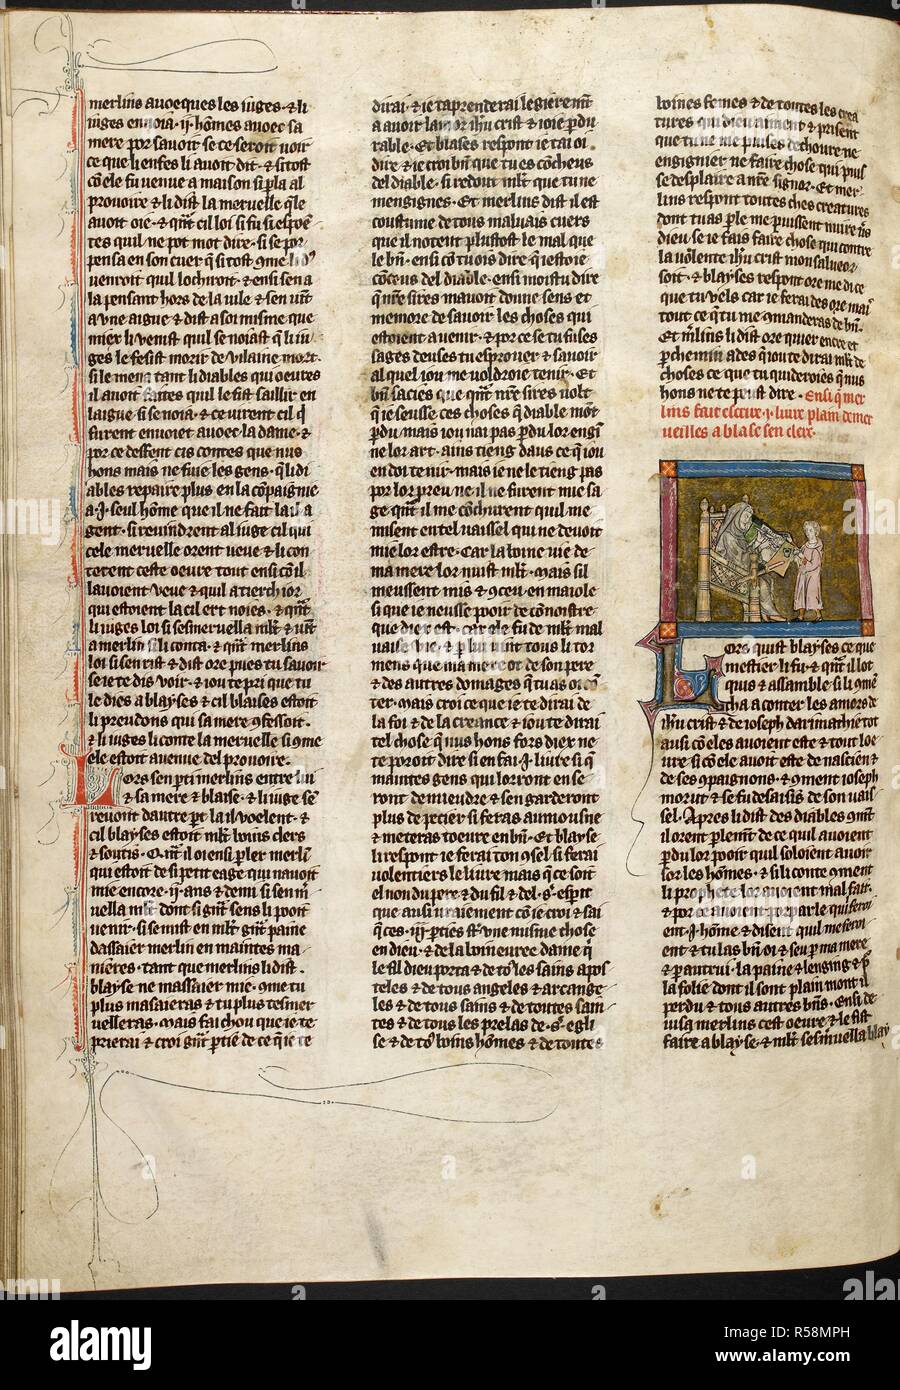 merlins avoecques les iuges · ⁊ li
iuges envoia · ij · hōmes avoec sa
mere por savoir se ce seroit voir
ce que li enfes li avoit dit · ⁊ si tost
cō ele fu venue a maison si pla al
provoire ⁊ li dist la mervelle q̄le
avoit oie · ⁊ qn̄t cil loi si fu si espoē
tes quil ne pot mot dire · si se por
pensa en son cuer q̄ si tost 9me li
venroit quil lochiroit · ⁊ ensi sen a
la pensant hors de la vile ⁊ sen vīt
a vne aigue ⁊ dist a soi misme que
mier li venist quil se noiast q̄ li iu
ges le fesist morir de vilaine mort ·
si le mena tant li diables qui oevres
il avoit faites quil le fist saillir en
laigue si se noia · ⁊ ce virent cil q̄
furent envoiet avoec la dame · ⁊
por ce deffent cis contes que nus
hons mais ne fuie les gens · q̄ li di
ables repaire plus en la cōpaignie
a · j · seul hōme que il ne fait la u a
gent · si revindrent al iuge cil qui
cele mervelle orent veue ⁊ li con
terent ceste oevre tout ensi cō il
lavoient veue ⁊ quil a tierch ior
qui estoient la cil ert noies · ⁊ qn̄t
li iuges loi si sesmervella ml̄t ⁊ vīt
a merlin si li conta · ⁊ qn̄t merlins
loi si sen rist ⁊ dist ore pues tu savoir
se ie te dis voir · ⁊ iou te pri que tu
le dies a blayses ⁊ cil blaises estoit
li preudons qui sa mere 9fessoit ·
⁊ li iuges li conte la mervelle si 9me
ele estoit avenue del provoire ·
Lors sen pti merlins entre lui
⁊ sa mere ⁊ blaise · ⁊ li iuge sē
revont dautre pt la il voelent · ⁊
cil blayses estoit ml̄t boins clers
⁊ soutis · Qn̄t il oi ensi pler merlī
qui estoit de si petit eage qui navoit
mie encore · ij · ans ⁊ demi si sen m̄
vella ml̄t dont si gn̄t sens li pooit
venir · si se mist en ml̄t gn̄t paine
dassaier merlin en maintes ma
nieres · tant que merlins li dist ·
blayse ne massaier mie · 9me tu
plus massaieras ⁊ tu plus tesmer
velleras · mais fai chou que ie te
prierai ⁊ croi gn̄t ptie de ce que te
dirai · ⁊ ie taprenderai legierem̄t
a avoir lamor ih̄u crist ⁊ ioie pdu
rable · Et blaises respont ie tai oi
dire ⁊ ie croi bn̄ que tu es cōcheus
del diable · si redout ml̄t que tu ne
mengignes · Et merlins dist il est
coustume de tous malvais cuers
que il notent plustost le mal que
le bn̄ · ensi cō tu ois dire q̄ iestoie
cōceus del diable · ensi mois tu dire
q̄ nr̄e sires mavoit donne sens et
memore de savoir les choses qui
estoient a venir · ⁊ por ce se tu fuses
sages deuses tu esprover ⁊ savoir
al quel iou me voldroie tenir · Et
bn̄ sacies que qn̄t nr̄e sires volt
q̄ ie seusse ces choses q̄ diable mōt
pdu · mais iou nai pas pdu lor engī
ne lor art · ains tieng dans ce q̄ iou
en doi tenir · mais ie ne le tieng pas
por lor preu · ne il ne furent mie sa
ge qn̄t il me cōchurent quil me
misent en tel vaissel qui ne devoit
mie lor estre · Car la boine vie de
ma mere lor nuist ml̄t · mais sil
meussent mis ⁊ 9ceu en maiole
si que ie neusse pooir de cōnostre
que diex est · car ele fu de ml̄t mal
vaise vie · ⁊ p lui vīnt tous li tor
mens que ma mere ot de son pere
⁊ des autres domages q̄ tu as oi cō
ter · mais croi ce que ie te dirai de
la foi ⁊ de la creance ⁊ iou te dirai
tel chose q̄ nus hons fors diex ne
te poroit dire si en fai · j · livre si q̄
maintes gens qui lorront en se
ront de mieudre ⁊ sen garderont
plus de pecier si feras aumousne
⁊ meteras toevre en bn̄ · Et blayse
li respont ie ferai ton 9sel si ferai
volentiers le livre mais q̄ ce soit
el non du pere ⁊ du fil ⁊ del · s · esprit
que ausi vraiement cō ie croi ⁊ sai
q̄ ces · iij · pties st̄ · vne misme chose
en dieu · ⁊ de la boineuree dame q̄
le fil dieu porta ⁊ de to9 les sains apos
teles ⁊ de tous angeles ⁊ arcange
les ⁊ de tous sains ⁊ de toutes sain
tes ⁊ de tous les prelas de · s · egli
se ⁊ de to9 boins hōmes ⁊ de toutes
boines femes ⁊ de toutes les crea
tures qui dieu aiment ⁊ prisent
que tu ne me puises dechoivre ne
engignier ne faire chose qui puis
se desplaire a nr̄e signor · Et mer
lins respont toutes ches creatures
dont tu as ple me puissent nuire
dieu · se ie fais faire chose qui contre
la volente ih̄u crist mon salveor
soit · ⁊ blayses respont ore me di ce
que tu vels car ie ferai des ore mai
tout ce q̄ tu me 9manderas de bn̄ ·
Et m̄lins li dist ore quier encre et
pchemin ades q̄ iou te dirai ml̄t de
choses ce que tu quideroies q̄ nus
hons ne te peust dire · Ensi q̄ mer
lins fait escrire · j · livre plain de mer
veilles a blase sen clerc ·
Lors quist blayses ce que
mestier li fu · ⁊ qn̄t il lot
quis ⁊ assamble si li 9men
cha a conter les amors de
ih̄u crist ⁊ de ioseph darimathie tot
ausi cō eles avoient este ⁊ tout loe
vre si cō ele avoit este de nascien ⁊
de ses 9paignons · ⁊ 9ment ioseph
morut ⁊ se fu desaisis de son vais
sel · Apres li dist des diables 9mt
il orent plemt de ce quil avoient
pdu lor pooir quil soloient avoir
sor les hōmes · ⁊ si li conte 9ment
li prophete lor avoient mal fait ·
⁊ por ce avoient porparle quil feroi
ent · j · hōme ⁊ disent quil me feroi
ent ⁊ tu las bn̄ oi ⁊ seu p ma mere
⁊ p autrui · la paine ⁊ lenging ⁊ p
la folie dont il sont plain mont il
perdu ⁊ tous autres bn̄s · Ensi de
iusa merlins cest oevre ⁊ le fist
faire a blayse · ⁊ ml̄t sesm̄vella blay
alamy
Image ID: R58MPH
www.alamy.com